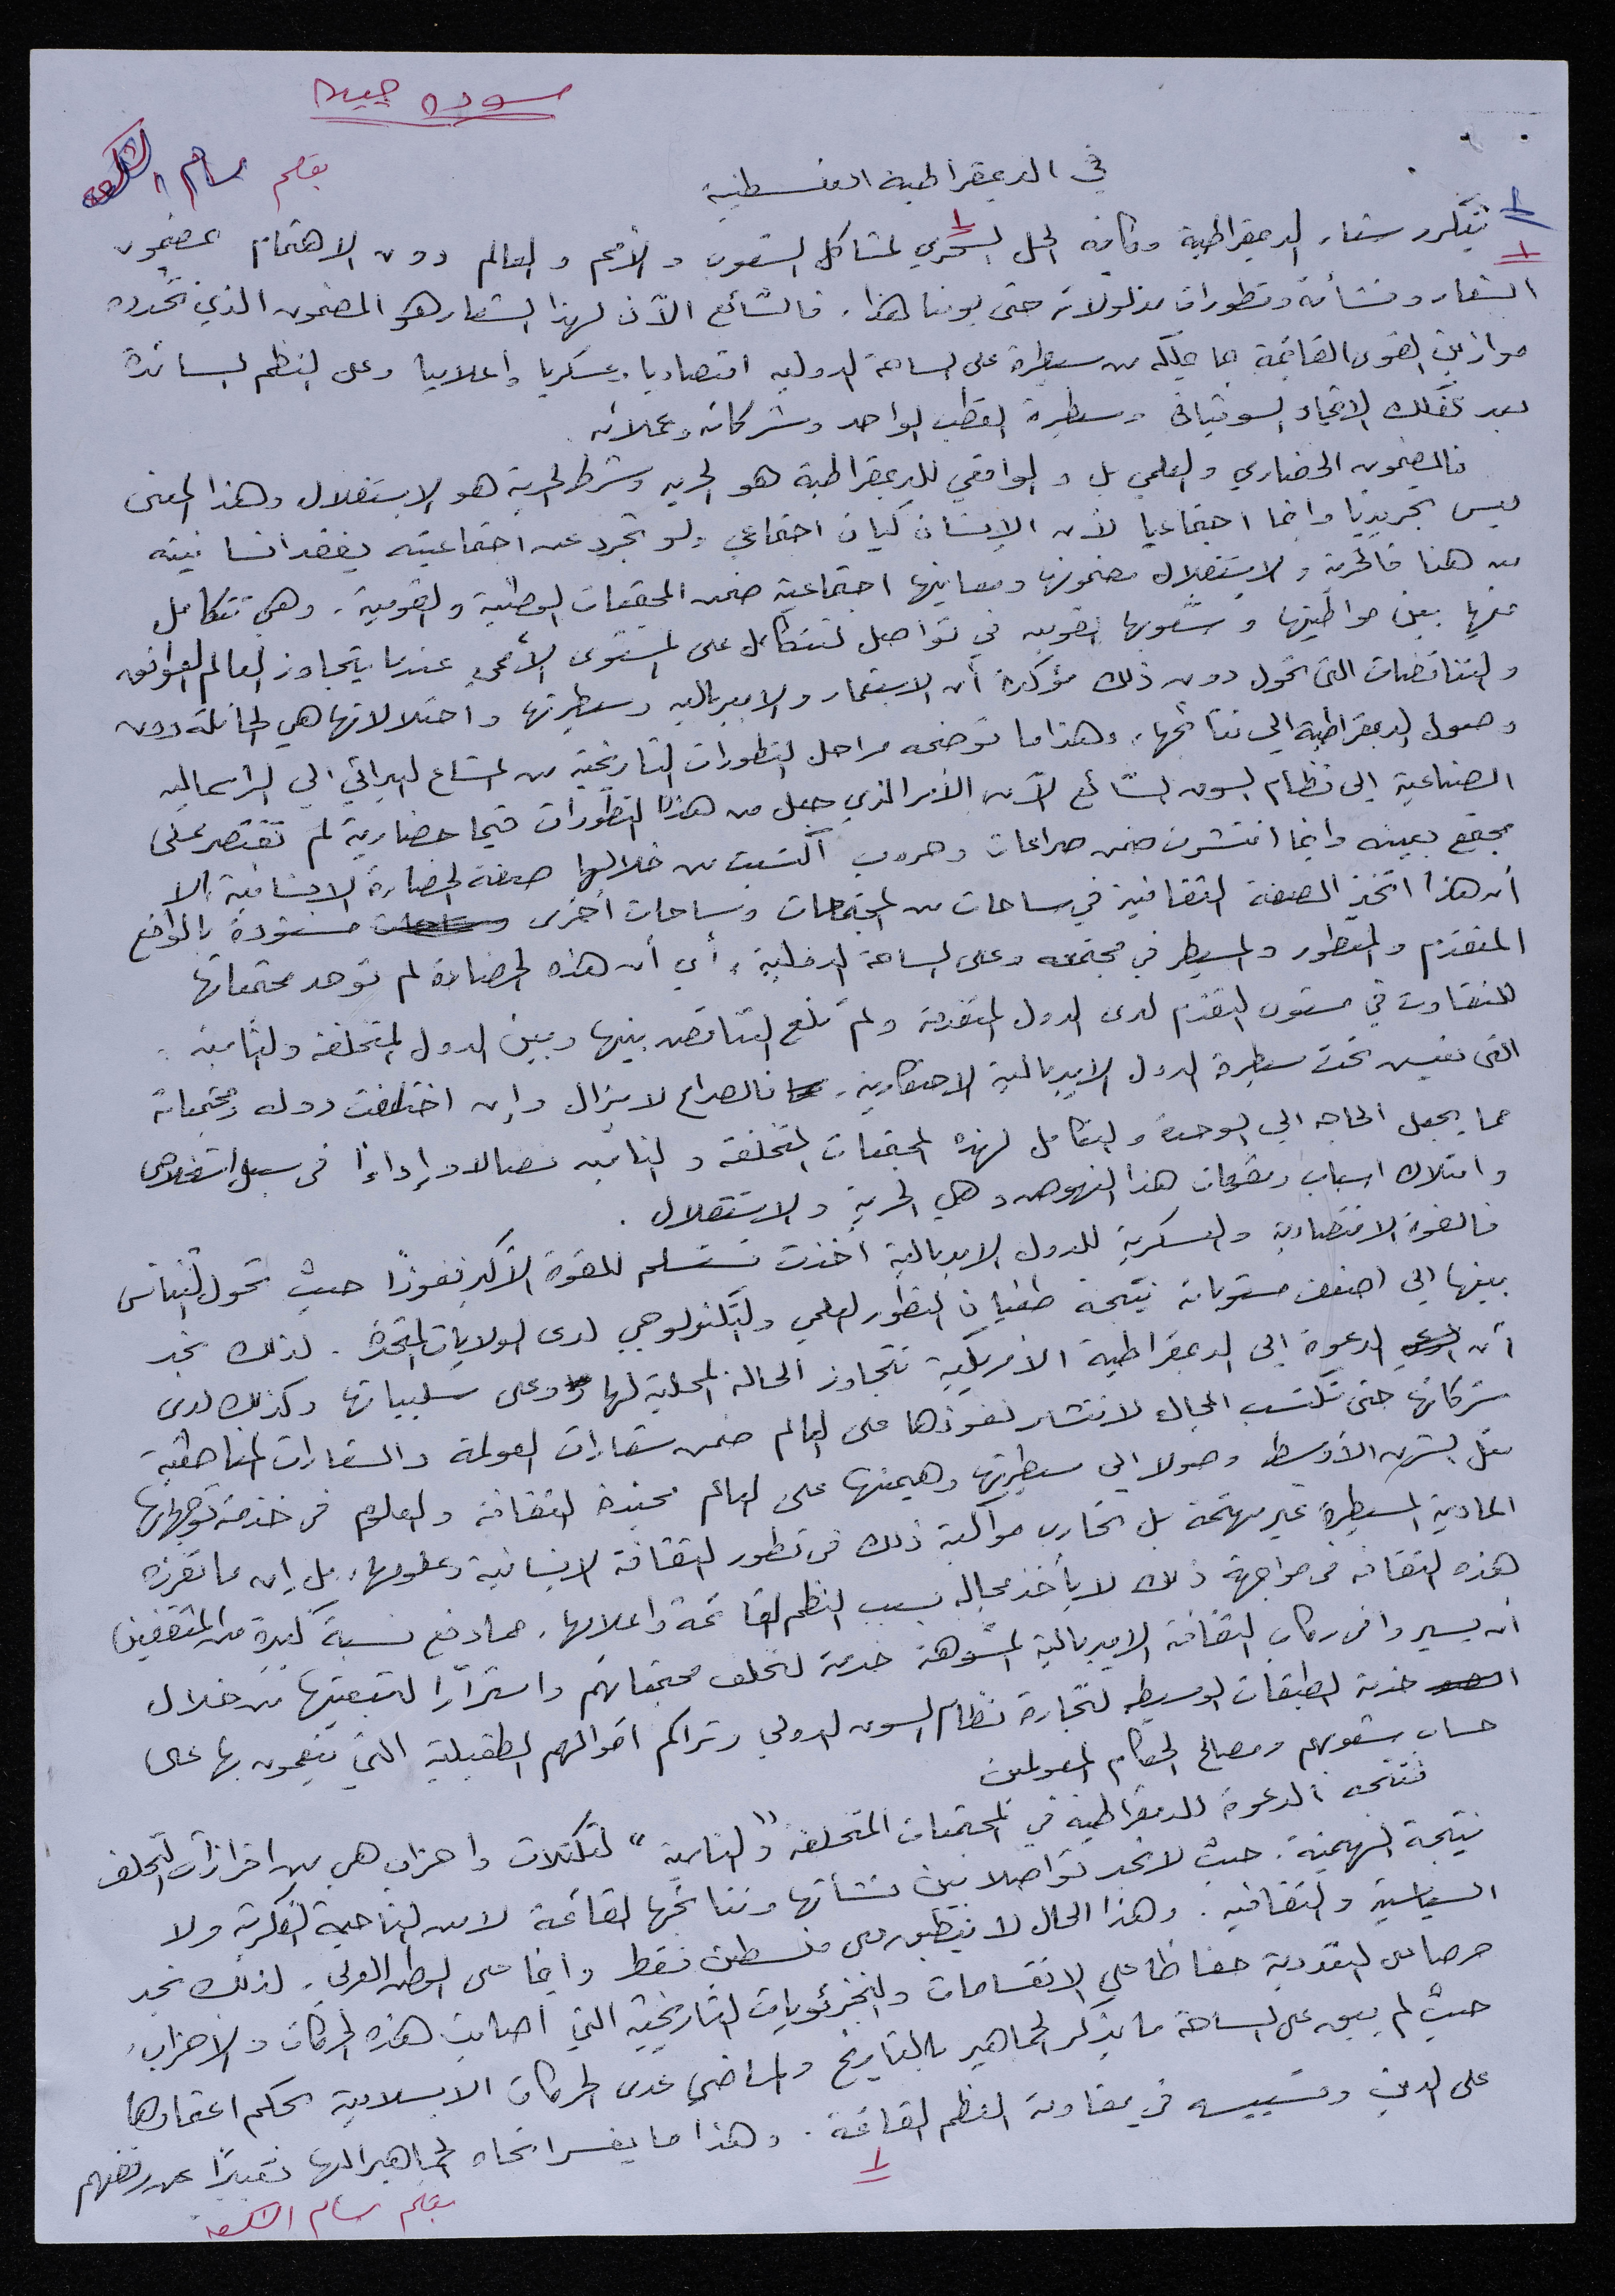 مسوده جيده
بقلم بسام الشكعه
في الديمقراطية الفلسطينية
١
١ يتكرر شعار الديمقراطية وكأنه الحل السحري لمشاكل الشعوب والأمم والعالم دون الاهتمام بمضمون
الشعار ونشأته وتطورات مدلولاته حتى يومنا هذا، فالشائع الآن لهذا الشعار هو المضمون الذي تحدده
موازين القوى القائمة بما تملكه من سيطرة على الساحة الدولية اقتصاديا وعسكريا واعلاميا وعلى النظم السائدة
بعد تفكك الاتحاد السوفياتي وسيطرة القطب الواحد وشركاته وعملائه.
فالمضمون الحضاري والعلمي بل والواقعي للديمقراطية هو الحرية وشرط الحرية هو الاستقلال وهذا المعنى
ليس تجريديا وانما اجتماعيا لأن الإنسان كيان اجتماعي ولو تجرد عن اجتماعيته يفقد انسانيته
من هنا فالحرية والاستقلال مضمونها ومعانيها اجتماعية ضمن المجتمعات الوطنية والقومية. وهي تتكامل
فيها بين مواطنيها وشعوبها القومية في تواصل لتتكامل على المستوى الأممي عندما يتجاوز العالم العوائق
والتناقضات التي تحول دون ذلك مؤكدة أن الاستعمار والامبريالية وسيطرتها واحتلالاتها هي الحائلة دون
وصول الديمقراطية الى نتائجها، وهذا ما توضحه مراحل التطورات التاريخية من المشاع البدائي الى الرأسمالية
الصناعية إلى نظام السوق الشائع الآن الأمر الذي جعل من هذه التطورات قيما حضارية لم تقتصر على
مجتمع بعينه وانما انتشرت ضمن صراعات وحروب اكتسبت من خلالها صفة الحضارة الانسانية إلا
أن هذا اتخذ الصفة الثقافية في ساحات من المجتمعات وساحات أخرى مشوهة بالواقع
المتقدم والمتطور والمسيطر في مجتمعه وعلى الساحة الدولية، أي أن هذه الحضارة لم توحد مجتمعاتها
للتفاوت في مستوى التقدم لدى الدول المتقدمة ولم تلغ التناقض بينها وبين الدول المتخلفة والنامية
التي تعيش تحت سيطرة الدول الامبريالية الاحتكارية، فالصراع لا يزال وإن اختلفت دوله ومجتمعاته
مما يجعل الحاجة الى الوحدة والتكامل لهذه المجتمعات المتخلفة والنامية نضالا وإداءا في سبيل استخلاص
وامتلاك اسباب ومقومات هذا النهوض وهي الحرية والاستقلال.
فالقوة الاقتصادية والعسكرية للدول الامبريالية أخذت تستسلم للقوة الأكبر نفوذا حيث تحول التنافس
بينها الى اضعف مستوياته نتيجة طغيان التطور العلمي والتكنولوجي لدى الولايات المتحدة. لذلك نجد
أن الدعوة إلى الديمقراطية الأمريكية تتجاوز الحالة المحلية لها وعلى سلبياتها وكذلك لدى
شركائها حتى تكتسب المجال لانتشار نفوذها على العالم ضمن شعارات العولمة والشعارات المناطقية
مثل الشرق الأوسط وصولا الى سيطرتها وهيمنتها على العالم مجندة الثقافة والعلوم في خدمة توجهاتها
المادية المسيطرة غير مهتمة بل تحارب مواكبة ذلك في تطور الثقافة الانسانية وعلومها، بل إن ما تفرزه
هذه الثقافة في مواجهة ذلك لا يأخذ مجاله بسبب النظم القائمة واعلامها، مما دفع نسبة كبيرة من المثقفين
أن يسيروا في ركاب الثقافة الامبريالية المشوهة خدمة لتخلف مجتمعاتهم واستمرارا لتبعيتها من خلال
خدمة الطبقات الوسيطة لتجارة نظام السوق الدولي وتراكم اموالهم الطفيلية التي ينعمون بها على
حساب شعوبهم ومصالح الحكام المعولمين
فنتجه الدعوة للديمقراطية في المجتمعات المتخلفة "والنامية" لتكتلات واحزاب هي من افرازات التخلف
نتيجة الهيمنة. حيث لا نجد تواصلا بين نشأتها ونتائجها القائمة لا من الناحية الفكرية ولا
السياسية والثقافية. وهذا الحال لا ينطبق على فلسطين فقط وانما على الوطن العربي، لذلك نجد
حرصا على التعددية حفاظا على الانقسامات والتجزئويات التاريخية التي أصابت هذه الحركات والاحزاب،
حيث لم يبق على الساحة ما يذكر الجماهير بالتاريخ والماضي لدى الحركات الاسلامية بحكم اعتمادها
على الدين وتسييسه في مقاومة النظم القائمة. وهذا ما يفسر اتجاه الجماهير اليها تعبيرا عن رفضهم
١
بقلم بسام الشكعه